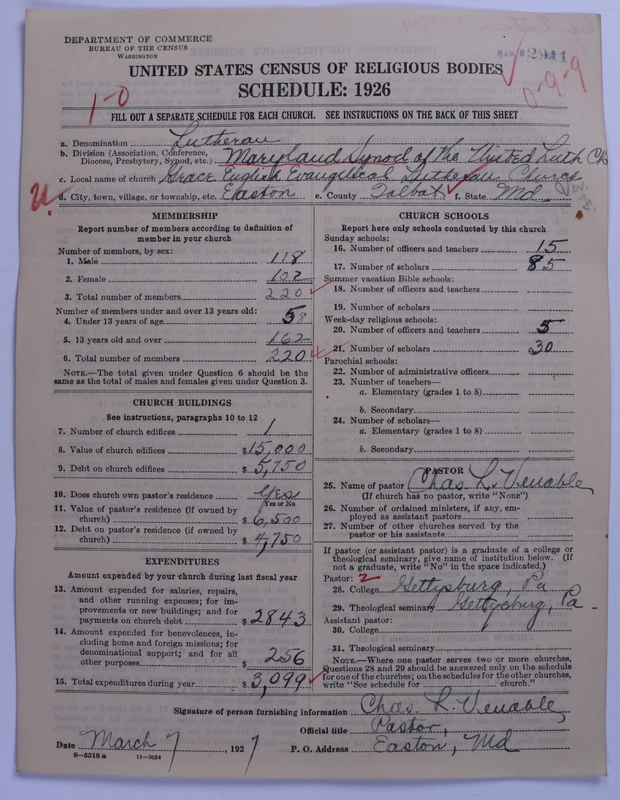 DEPARTMENT OF COMMERCE
BUREAU OF THE CENSUS
WASHINGTON
2941
UNITED STATES CENSUS OF RELIGIOUS BODIES
SCHEDULE: 1926
1-0
0-9-9
FILL OUT A SEPARATE SCHEDULE FOR EACH CHURCH. SEE INSTRUCTIONS ON THE BACK OF THIS SHEET
a. Denomination Lutheran
b. Division (Association, Conference, Diocese, Presbytery, Synod, etc.) Maryland Synod of the United Luth Ch
c. Local name of church Grace English Evangelical Lutheran Church
d. City, town, village, or township, etc. Easton e. County Talbot f. State Md.
MEMBERSHIP
Report number of members according to definition of
member in your church
Number of members, by sex:
1. Male 118
2. Female 102
3. Total number of members 220
Number of members under and over 13 years old:
4. Under 13 years of age 58
5. 13 years old and over 162
6. Total number of members 220
NOTE.—The total given under Question 6 should be
the same as the total of males and females given under Question 3.
CHURCH BUILDINGS
See instructions, paragraphs 10 to 12
7. Number of church edifices 1
8. Value of church edifices $15,000
9. Debt on church edifices $5,750
10. Does church own pastor's residence Yes
Yes or No
11. Value of pastor's residence (if owned by
church) $6,500
12. Debt on pastor's residence (if owned by
church) $4,750
EXPENDITURES
Amount expended by your church during last fiscal year
13. Amount expended for salaries, repairs,
and other running expenses; for im-
provements or new buildings; and for
payments on church debt $2843
14. Amount expended for benevolences, in-
cluding home and foreign missions; for
denominational support; and for all
other purposes $256
15. Total expenditures during year $3,099
CHURCH SCHOOLS
Report here only schools conducted by this church
Sunday schools:
16. Number of officers and teachers 15
17. Number of scholars 85
Summer vacation Bible schools:
18. Number of officers and teachers
19. Number of scholars
Week-day religious schools:
20. Number of officers and teachers 5
21. Number of scholars 30
Parochial schools:
22. Number of administrative officers
23. Number of teachers—
a. Elementary (grades 1 to 8)
b. Secondary
24. Number of scholars—
a. Elementary (grades 1 to 8)
b. Secondary
PASTOR
25. Name of pastor Chas L. Venable
(If church has no pastor, write "None")
26. Number of ordained ministers, if any, em-
ployed as assistant pastors
27. Number of other churches served by the
pastor or his assistants
If pastor (or assistant pastor) is a graduate of a college or
theological seminary, give name of institution below. (If
not a graduate, write "No" in the space indicated.)
Pastor: 2
28. College Gettysburg, Pa
29. Theological seminary Gettysburg, Pa
Assistant pastor:
30. College
31. Theological seminary
NOTE.—Where one pastor serves two or more churches,
Questions 28 and 29 should be answered only on the schedule
for one of the churches; on the schedules for the other churches,
write "See schedule for church."
Signature of person furnishing information Chas. L. Venable
Official title Pastor,
Date March 7, 1927 P. O. Address Easton, Md
8-5518a 11-9034